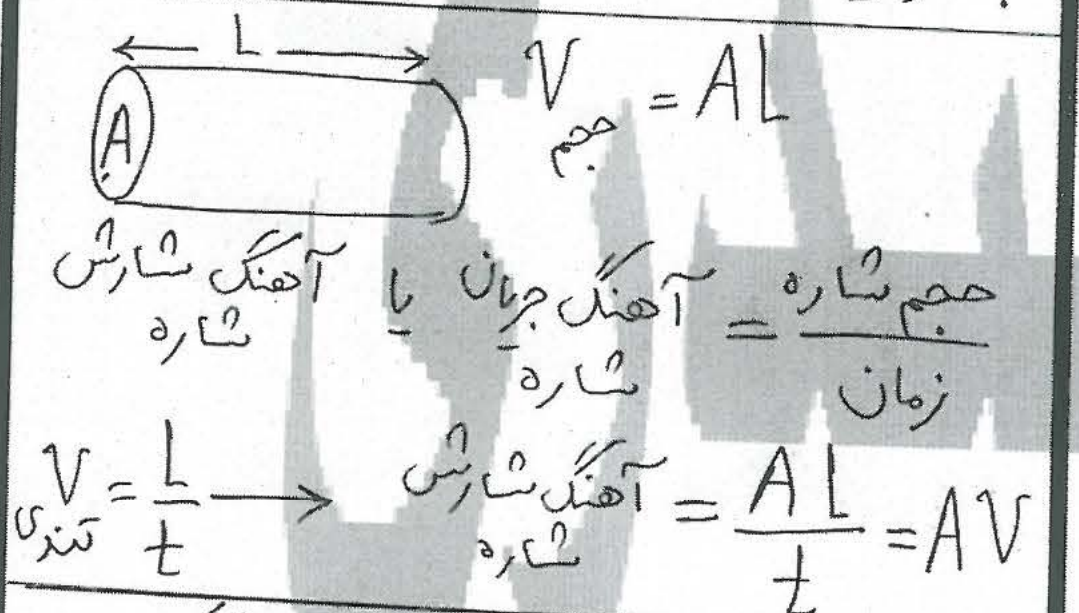 L
A
V حجم = AL
آهنگ شارش شاره یا آهنگ جریان شاره = حجم شاره / زمان
V تندی = L / t → آهنگ شارش شاره = AL / t = AV